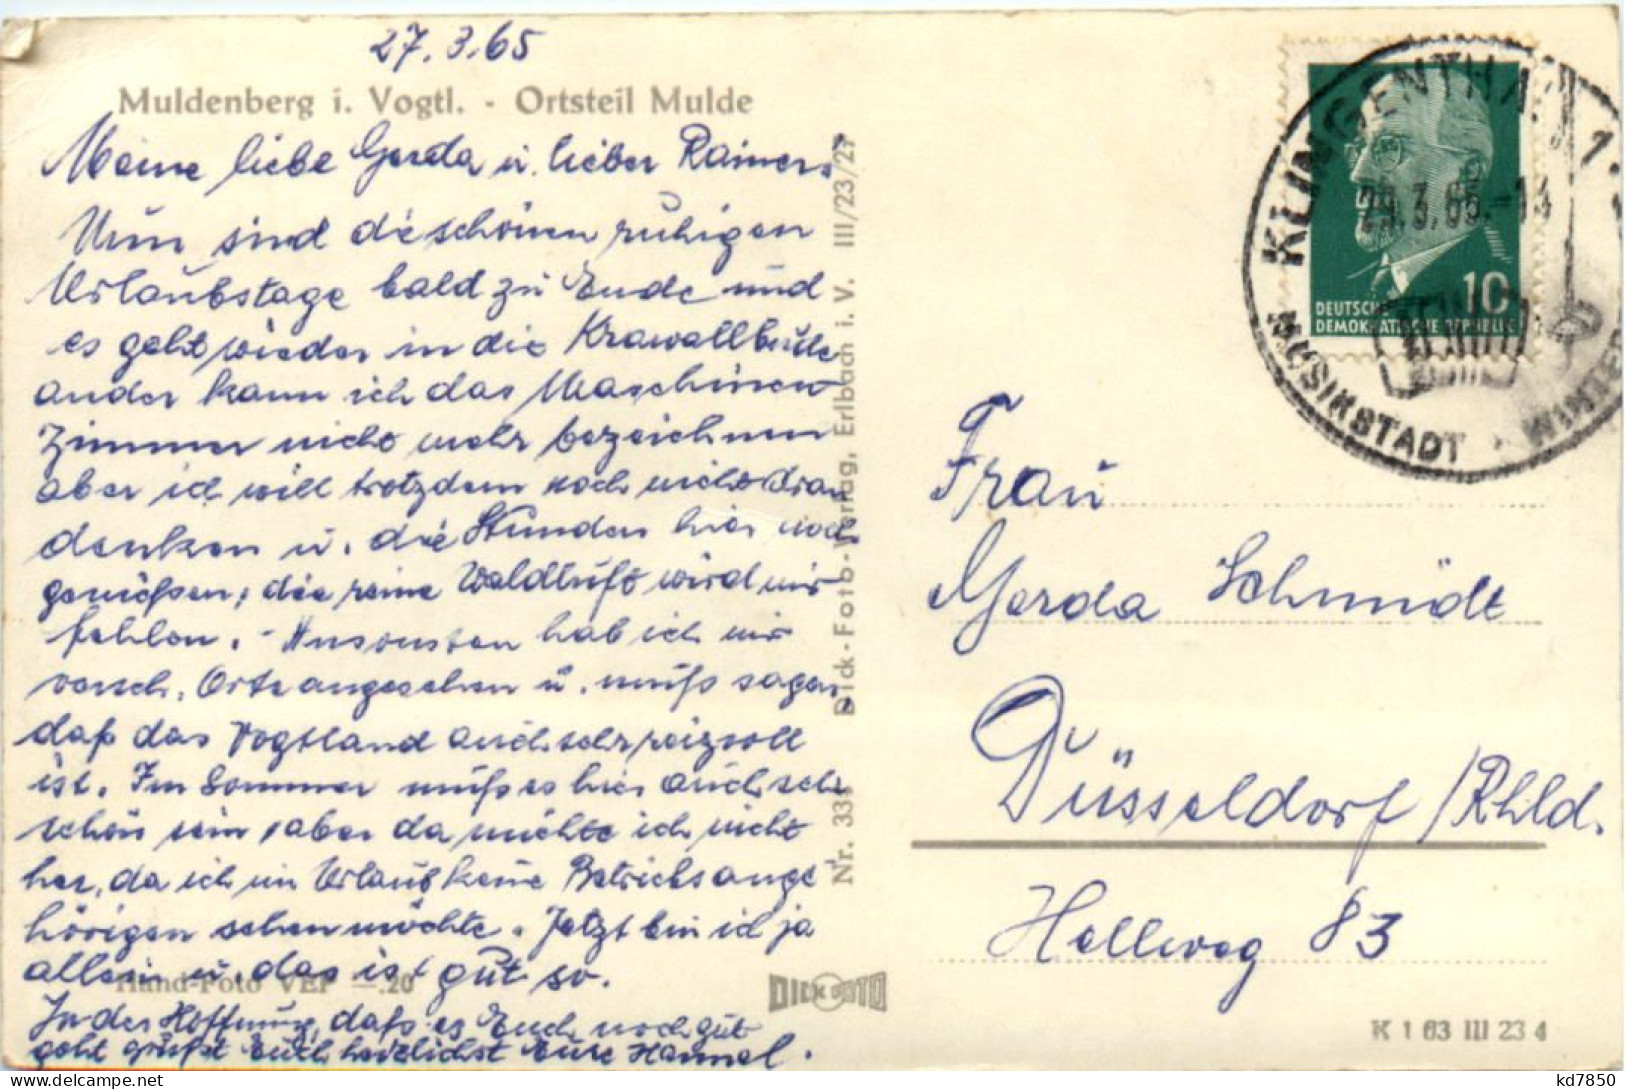 27.3.65
Muldenberg i. Vogtl. - Ortsteil Mulde
Meine liebe Gerda u. lieber Rainer.
Nun sind die schönen ruhigen
Urlaubstage bald zu Ende und
es geht wieder in die Krawallbude
ander kann ich das Maschinen
Zimmer nicht mehr bezeichnen
aber ich will trotzdem noch nicht dran
denken u. die Stunden hier noch
genießen; die reine Waldluft wird mir
fehlen. - Ansonsten hab ich mir
versch. Orte angesehen u. muß sagen
daß das Vogtland auch sehr reizvoll
ist. Im Sommer muß es hier auch sehr
schön sein, aber da möchte ich nicht
her, da ich im Urlaub keine Betriebsange
hörigen sehen möchte. Jetzt bin ich ja
allein u. das ist gut so.
Hand-Foto VEP -.20
In der Hoffnung, daß es Euch noch gut
geht grüßt Euch herzlichst Eure Hannel.
Nr. 331 Dick-Foto-Verlag, Erlbach i. V. III/23/27
DICK FOTO
KLINGENTHAL 1
29.3.65.-18
MUSIKSTADT · WINTER
10
DEUTSCHE
DEMOKRATISCHE REPUBLIK
Frau
Gerda Schmidt
Düsseldorf/Rhld.
Hellweg 83
K 1 63 III 23 4
kd7850